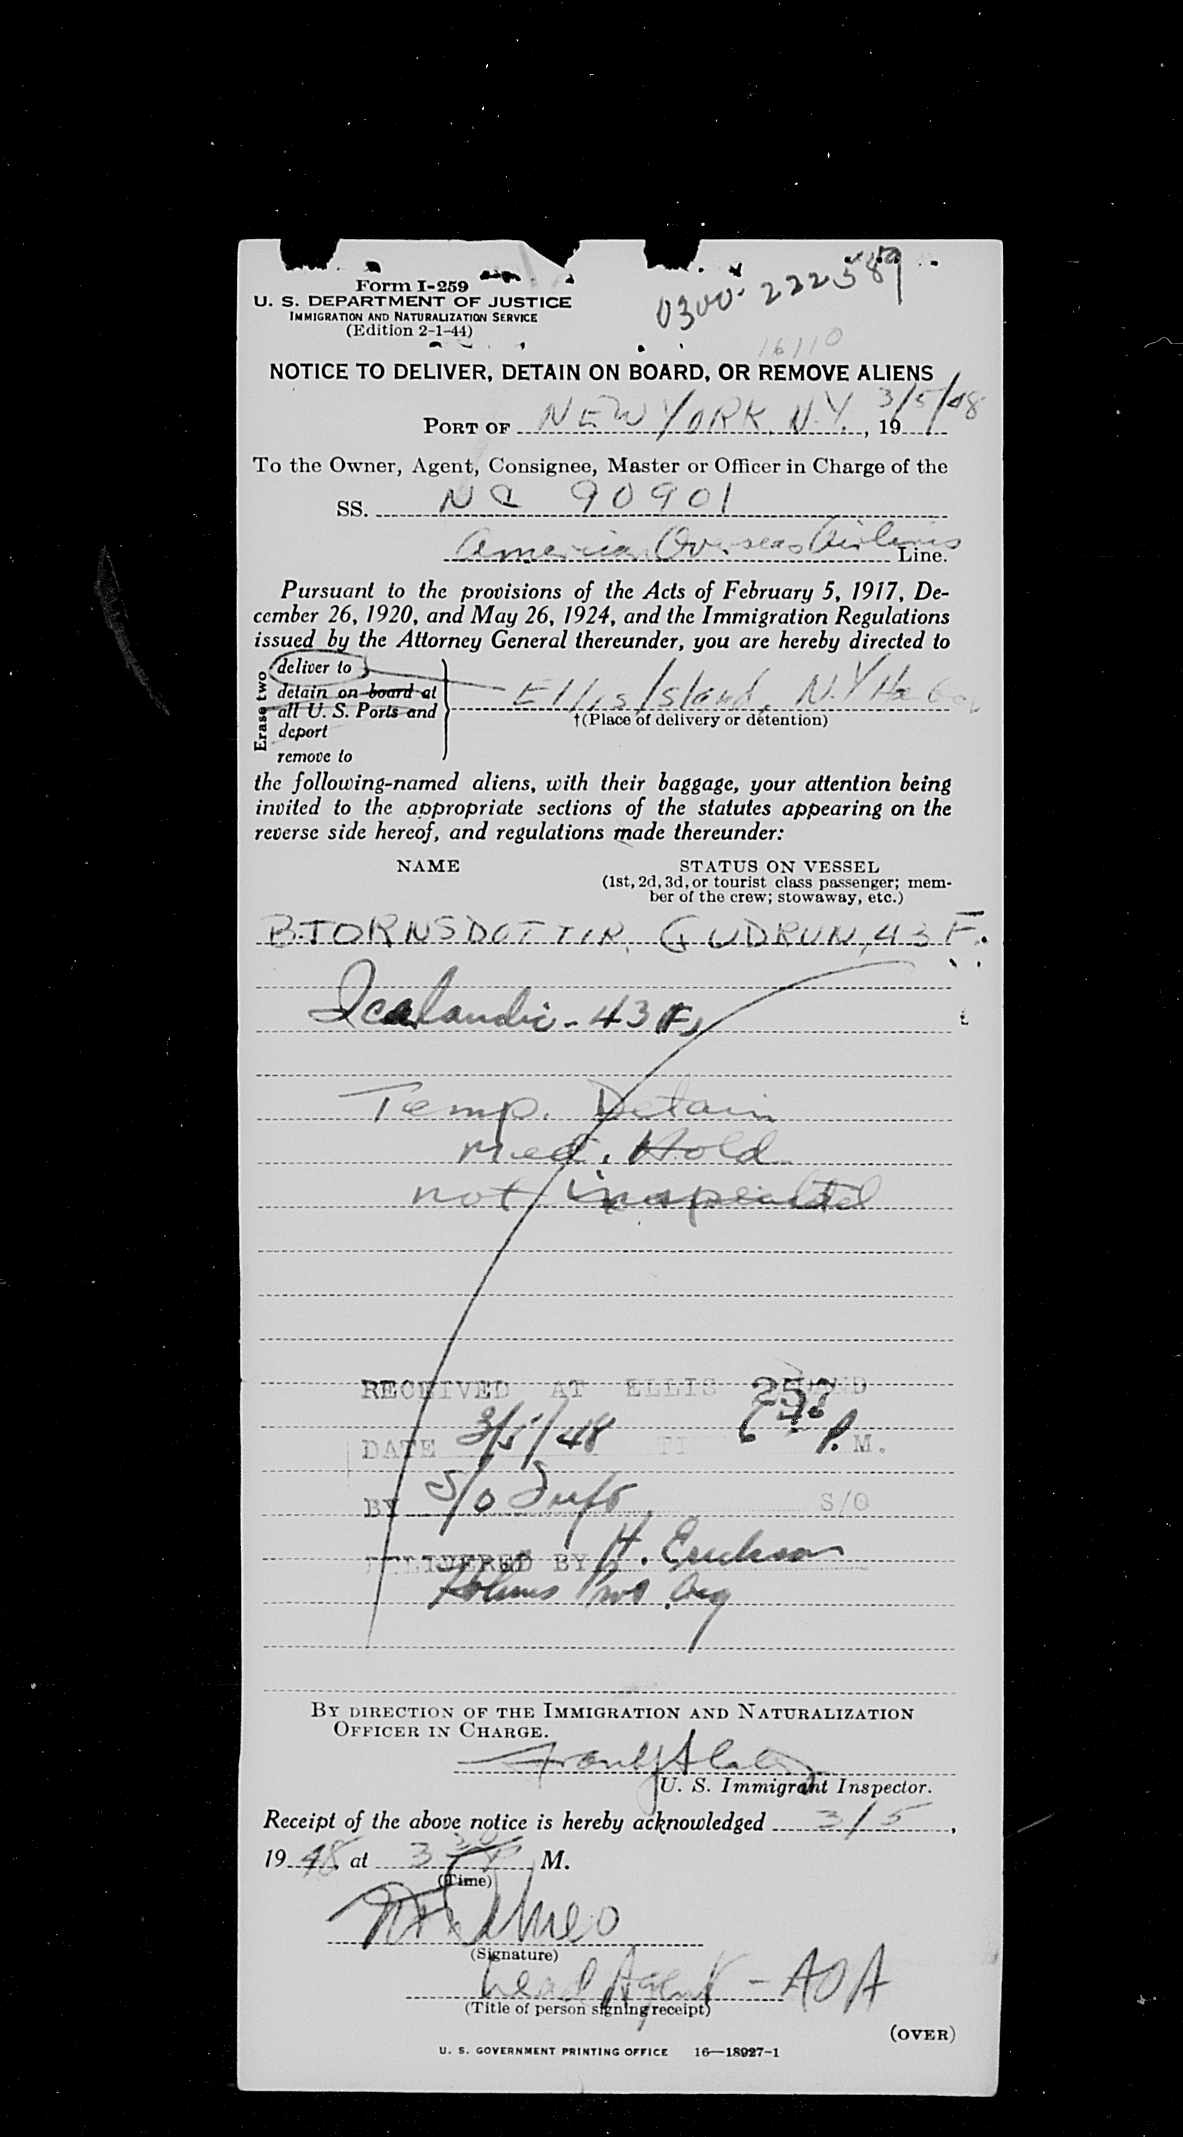 0300-222589
Form I-259
U. S. DEPARTMENT OF JUSTICE
IMMIGRATION AND NATURALIZATION SERVICE
(Edition 2-1-44)
16110
NOTICE TO DELIVER, DETAIN ON BOARD, OR REMOVE ALIENS
PORT OF NEW YORK, N.Y. 3/5/48, 19
To the Owner, Agent, Consignee, Master or Officer in Charge of the
SS. NC 90901
American Overseas Airlines Line.
Pursuant to the provisions of the Acts of February 5, 1917, De-
cember 26, 1920, and May 26, 1924, and the Immigration Regulations
issued by the Attorney General thereunder, you are hereby directed to
Erase two
deliver to
detain on board at
all U. S. Ports and
deport
remove to
Ellis Island, N.Y. Harbor
†(Place of delivery or detention)
the following-named aliens, with their baggage, your attention being
invited to the appropriate sections of the statutes appearing on the
reverse side hereof, and regulations made thereunder:
NAME STATUS ON VESSEL
(1st, 2d, 3d, or tourist class passenger; mem-
ber of the crew; stowaway, etc.)
BJORNSDOTTIR, GUDRUN, 43 F.
Icelandic - 43 F,
Temp. Detain
Med. Hold
not inspected
RECEIVED AT ELLIS ISLAND
257
DATE 3/5/48 P. M.
BY S/O S/O
DELIVERED BY H. Erickson
BY DIRECTION OF THE IMMIGRATION AND NATURALIZATION
OFFICER IN CHARGE.
U. S. Immigrant Inspector.
Receipt of the above notice is hereby acknowledged 3/5,
1948, at 3 30 P M.
(Time)
(Signature)
Lead Agent - AOA
(Title of person signing receipt)
(OVER)
U. S. GOVERNMENT PRINTING OFFICE 16—18927-1